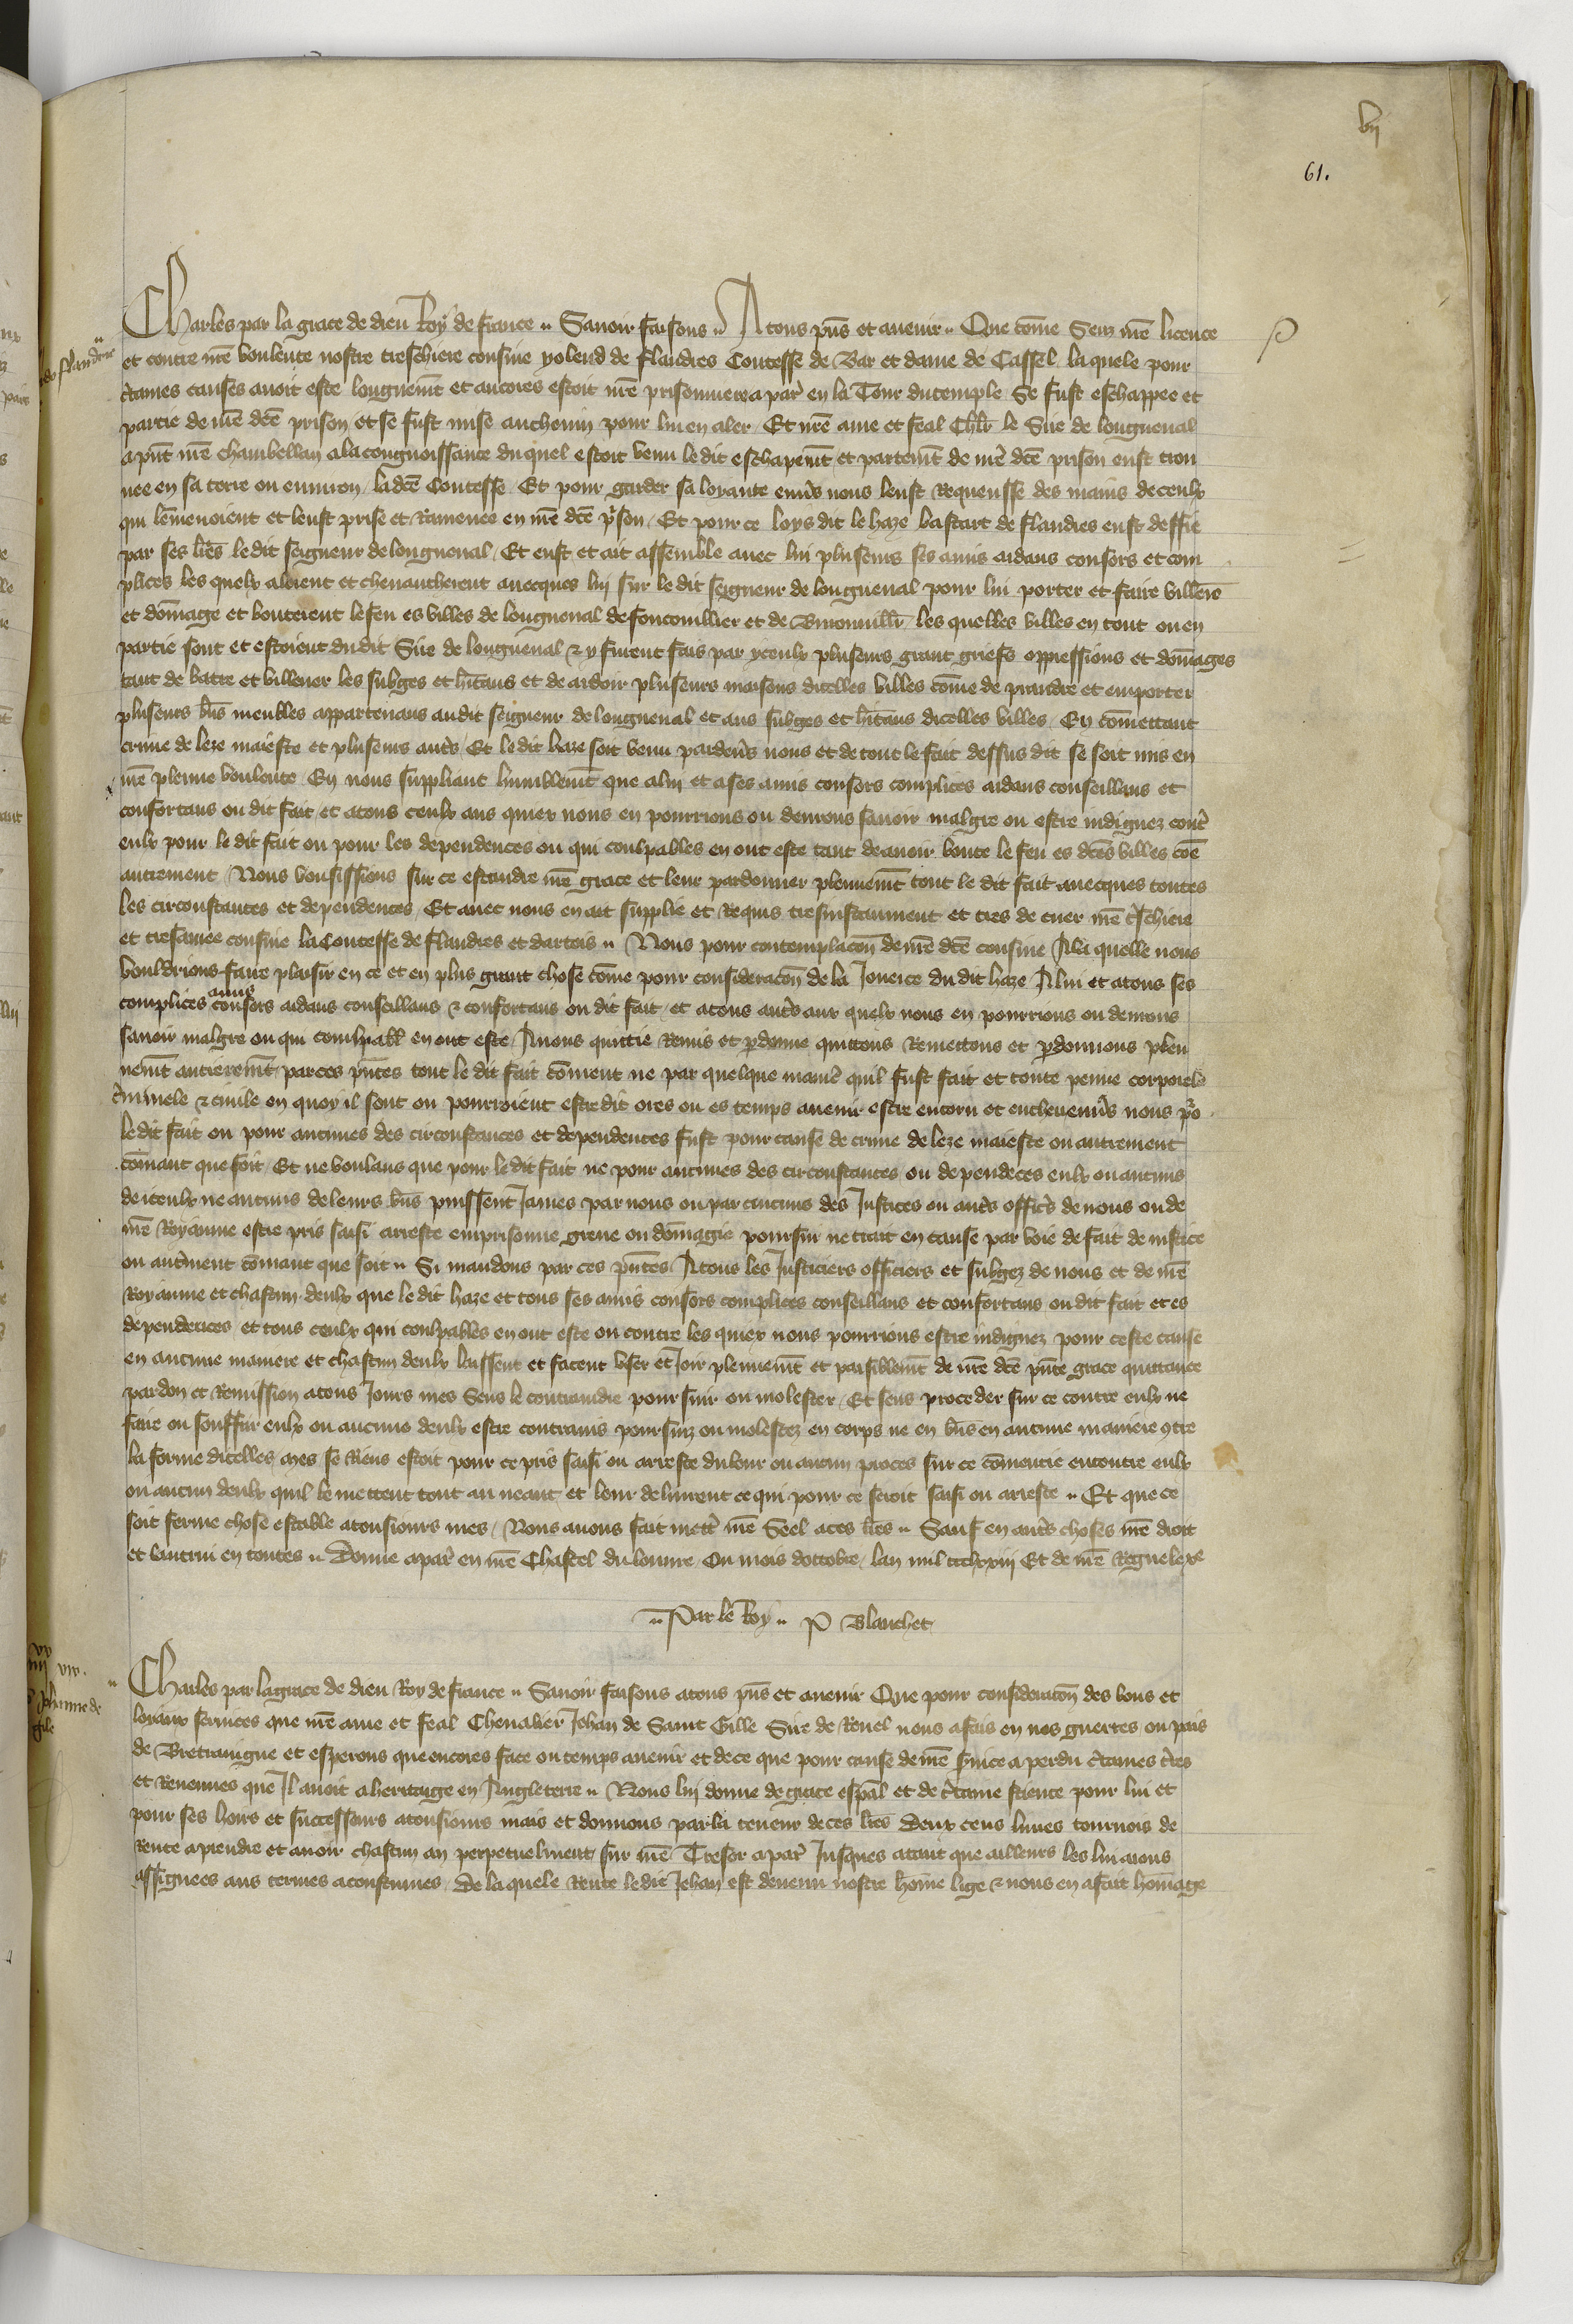 vij
61.
Charles par la grace de dieu Roy de france .. Sauoir faisons .. A tous pñs et auenir .. Que cõme Senz nr̃e licence
et contre nr̃e voulente nostre treschiere cousine yolend de flandres Contesse de Bar et dame de Cassel la quele pour
c̃taines causes auoit este longuemt̃ et ancores estoit nr̃e prisonniere a par̃ en la Tour du temple Se fust eschappee et
partie de nr̃e dc̃e prison et se fust mise au chemin pour luien aler Et nr̃e ame et feal Chlr̃ le Sire de longueual
a pñt nr̃e chambellan a la congnoissance du quel estoit venu le dit eschapemt̃ et partemt̃ de nr̃e dc̃e prison eust trou
uee en sa terre ou enuiron ladc̃e Contesse Et pour garder sa loyaute enu̾s nous leust Requeusse des mains de ceulx
qui lẽmenoient et leust prise et Ramenee en nr̃e dc̃e p̃son Et pour ce loys dit le haze bastart de flandres eust deffie
par ses lr̃es le dit seigneur de longueual Et eust et ait assemble auec lui pluseurs ses amis aidans consors et com
plices les quelx alerent et cheuaucherent auecques luy sur le dit seigneur de longueual pour lui porter et faire villenie
et dõmage et bouterent le feu es villes de longueual de foncouillier et de les quelles villes en tout ou en
partie sont et estoient dudit Sire de longueual & y furent fais par yceulx pluseurs grant griefs oppressions et dõmages
tant de batre et villener les subges et hr̃itans et de ardoir pluseurs maisons dicelles villes cõme de prandre et emporter
pluseurs bñs meubles appartenans audit seigneur de longueual et aus subges et hr̃itans dicelles villes En cõmettant
crime de leze maieste et pluseurs aut̾s Et le dit haze soit venu pardeu̾s nous et de tout le fait dessus dit se soit mis en
nr̃e plenne voulente En nous suppliant humblemt̃ que a luy et a ses amis consors complices aidans conseillans et
confortans ou dit fait et a tous ceulx aus quiex nous en pourrions ou deuons sauoir malgre ou estre indignez cont̾
eulx pour le dit fait ou pour les dependences ou qui coulpables en ont este tant de auoir boute le feu es dc̃es villes cõe
autrement Nous voulsissions sur ce estandre nr̃e grace et leur pardonner plennemt̃ tout le dit fait auecques toutes
les circonstances et dependences Et auec nous en ait supplie et Requis tresinstanment et tres de cuer nr̃e t̃schiere
et tresamee cousine la Contesse de flandres et dartois .. Nous pour contemplacoñ de nr̃e dc̃e cousine A la quelle nous
vouldrions faire plaisir en ce et en plus grant chose cõme pour consideracoñ de la Jonesce du dit haze A lui et a tous ses
amis
complices consors aidans conseillans & confortans ou dit fait et a tous aut̾s aux quelx nous en pourrions ou deurions
sauoir malgre ou qui coulpabl̃ en ont este Auons quittie Remis et p̱donne quittons Remettons et p̱donnons plen
nemt̃ antieremt̃ par ces pñtes tout le dit fait cõment ne par quelque manie̾ quil fust fait et toute penne corporele
c̃minele & ciuile en quoy il sont ou pourroient estre dit ores ou es temps auenir estre encoru et encheu enu̾s nous p̾o
le dit fait ou pour aucunes des circonstances et dependences fust pour cause de crime de leze maieste ou autrement
cõmant que soit Et ne voulans que pour le dit fait ne pour aucunes des circonstances ou dependẽces eulx ou aucuns
de iceulx ne aucuns de leurs bñs puissent James par nous ou par aucuns des Justices ou aut̾s offic̾s de nous ou de
nr̃e Royaume estre pris saisi arreste emprisonne greue ou dõmagie poursui ne trait en cause par voie de fait de iustice
ou aut̾ment cõmant que soit .. Si mandons par ces pñtes A tous les Justiciers officiers et subgez de nous et de nr̃e
Royaume et chascun deulx que le dit haze et tous ses amis consors complices conseillans et confortans ou dit fait et es
dependences et tous ceulx qui coulpables en ont este ou contre les quiex nous pourrions estre indignez pour ceste cause
en aucune maniere et chascun deulx laissent et facent vser et Joir plennemt̃ et paisiblemt̃ de nr̃e dc̃e pñte grace quittance
pardon et Remission a tous Jours mes Sens le contraindre poursuir ou molester Et sens proceder sur ce contre eulx ne
faire ou souffrir eulx ou aucuns deulx estre contrains poursuiz ou molestez en corps ne en bñs en aucune maniere ꝯtre
la forme dicelles mes se Riens estoit pour ce pris saisi ou arreste du leur ou aucun proces sur ce cõmencie encontre eulx
ou aucun deulx quil le mettent tout au neant et leur deliurent ce qui pour ce seroit saisi ou arreste .. Et que ce
soit ferme chose estable a tousiours mes Nous auons fait mett̾ nr̃e Seel a ces lr̃es .. Sauf en aut̾s choses nr̃e droit
et lautrui en toutes .. Donne a par̃ en nr̃e Chastel du louure Ou mois doctobre lan mil ccclxxiij Et de nr̃e Regne le xe
.. Par le Roy .. P Blanchet
Charles par la grace de dieu Roy de france .. Sauoir faisons a tous pñs et auenir Que pour consideracoñ des bons et
loyaux seruices que nr̃e ame et feal Cheualier Jehan de Saint Gille Sire de Reuel nous a fais en nos guerres ou pais
de Bretaingne et esperons que encores face ou temps auenir et de ce que pour cause de nr̃e s̾uice a perdu c̃taines t̾res
et Reuenues que Il auoit a heritaige en Angleterre .. Nous luy donne de grace esp̃al et de c̃taine science pour lui et
pour ses hoirs et successeurs a tousiours mais et donnons par la teneur de ces lr̃es Deux cens liures tournois de
Rente a prendre et auoir chascun an perpetuelment sur nr̃e Tresor a par̃ Jusques atant que ailleurs les lui aions
assignees aus termes acoustumes De la quele Rente le dit Jehan est deuenu nostre hõme lige & nous en a fait hõmage